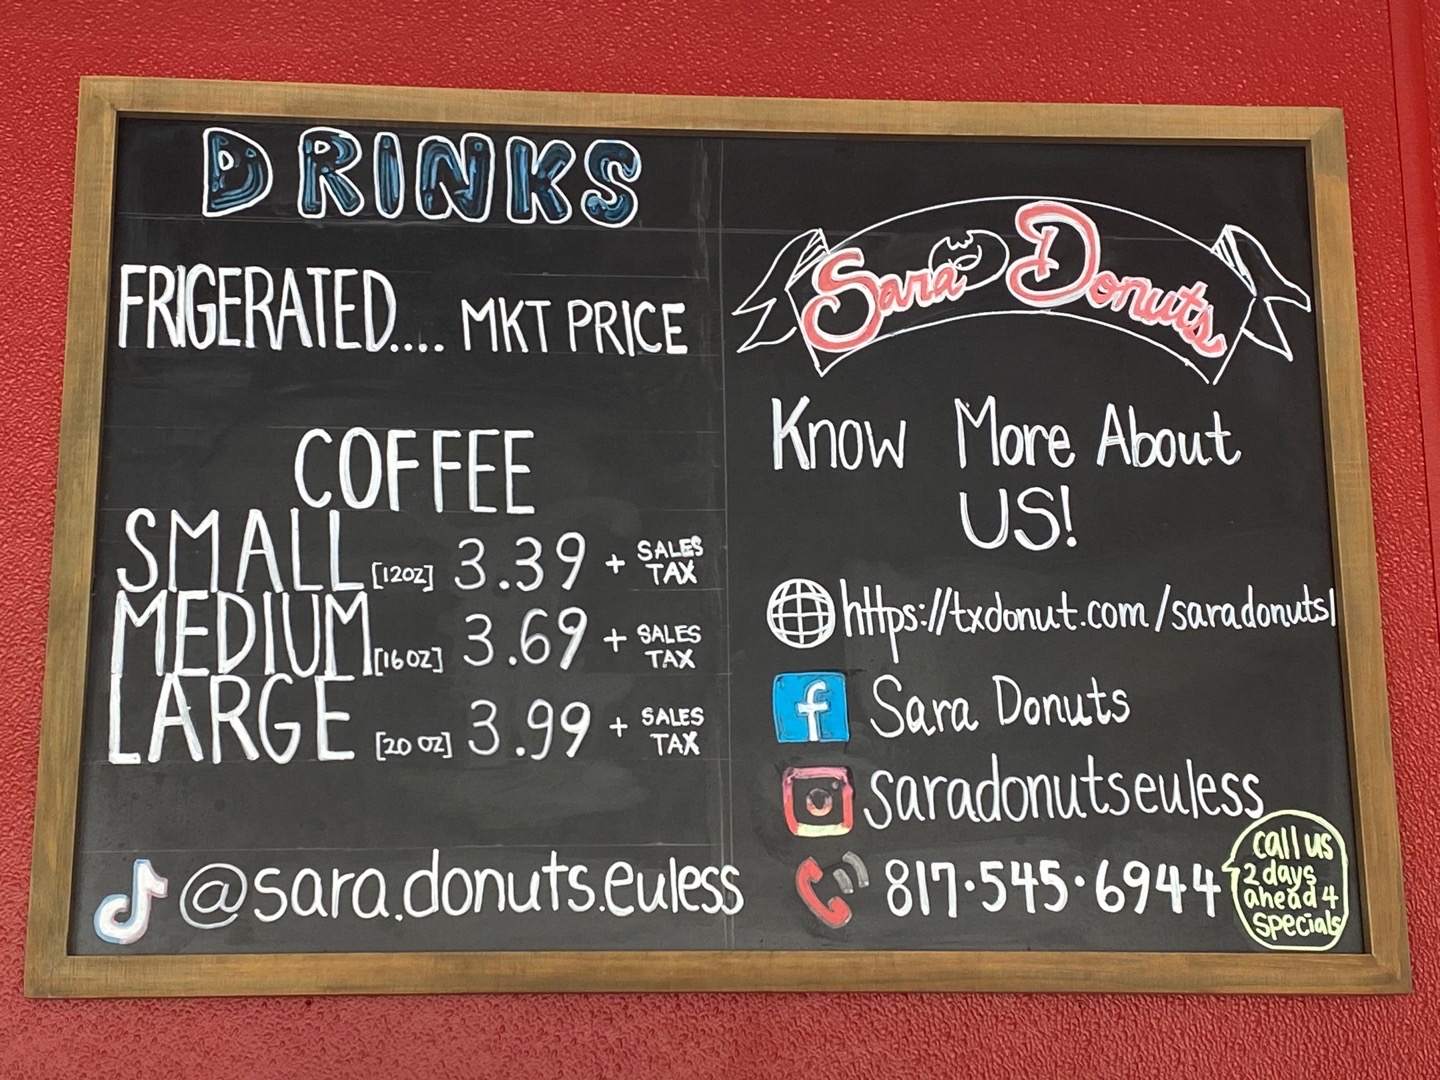 DRINKS
FRIGERATED.... MKT PRICE
COFFEE
SMALL [12OZ] 3.39 + SALES TAX
MEDIUM [16OZ] 3.69 + SALES TAX
LARGE [20 OZ] 3.99 + SALES TAX
@sara.donuts.euless
Sara Donuts
Know More About
US!
https://txdonut.com/saradonuts1
f Sara Donuts
saradonutseuless
817·545·6944
call us
2 days
ahead 4
specials